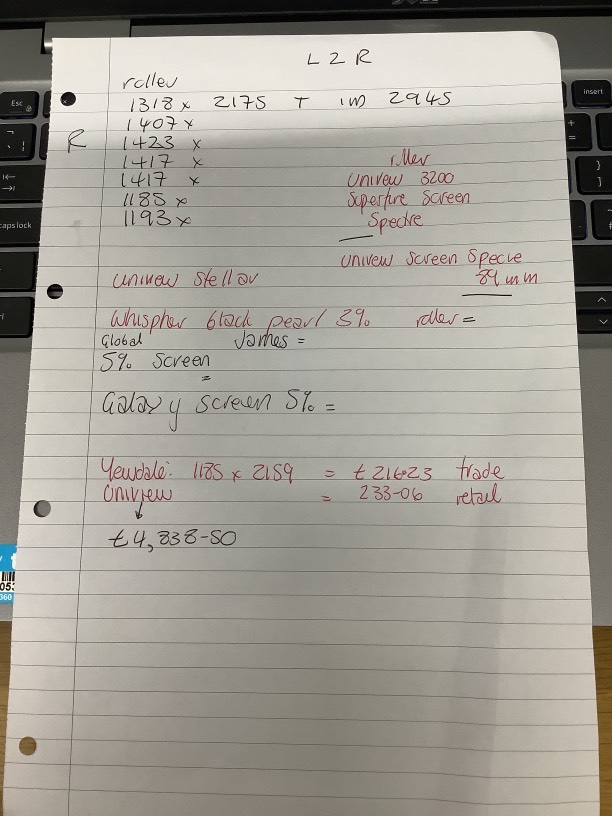 L 2 R
roller
1318 x 2175 T IM 2945
1407 x
R 1423 x
1417 x
1417 x
1185 x
1193 x
roller
Univew 3200
Screen
Spectre
Univew Screen Specre
89 mm
univew Stellar
Whispher black pearl 3% roller =
Global James =
5% Screen
=
Galaxy screen 5% =
Yewdale: 1185 x 2159 = £216.23 trade
Uniview = 233-06 retail
£4,838-50
Esc
caps lock
insert